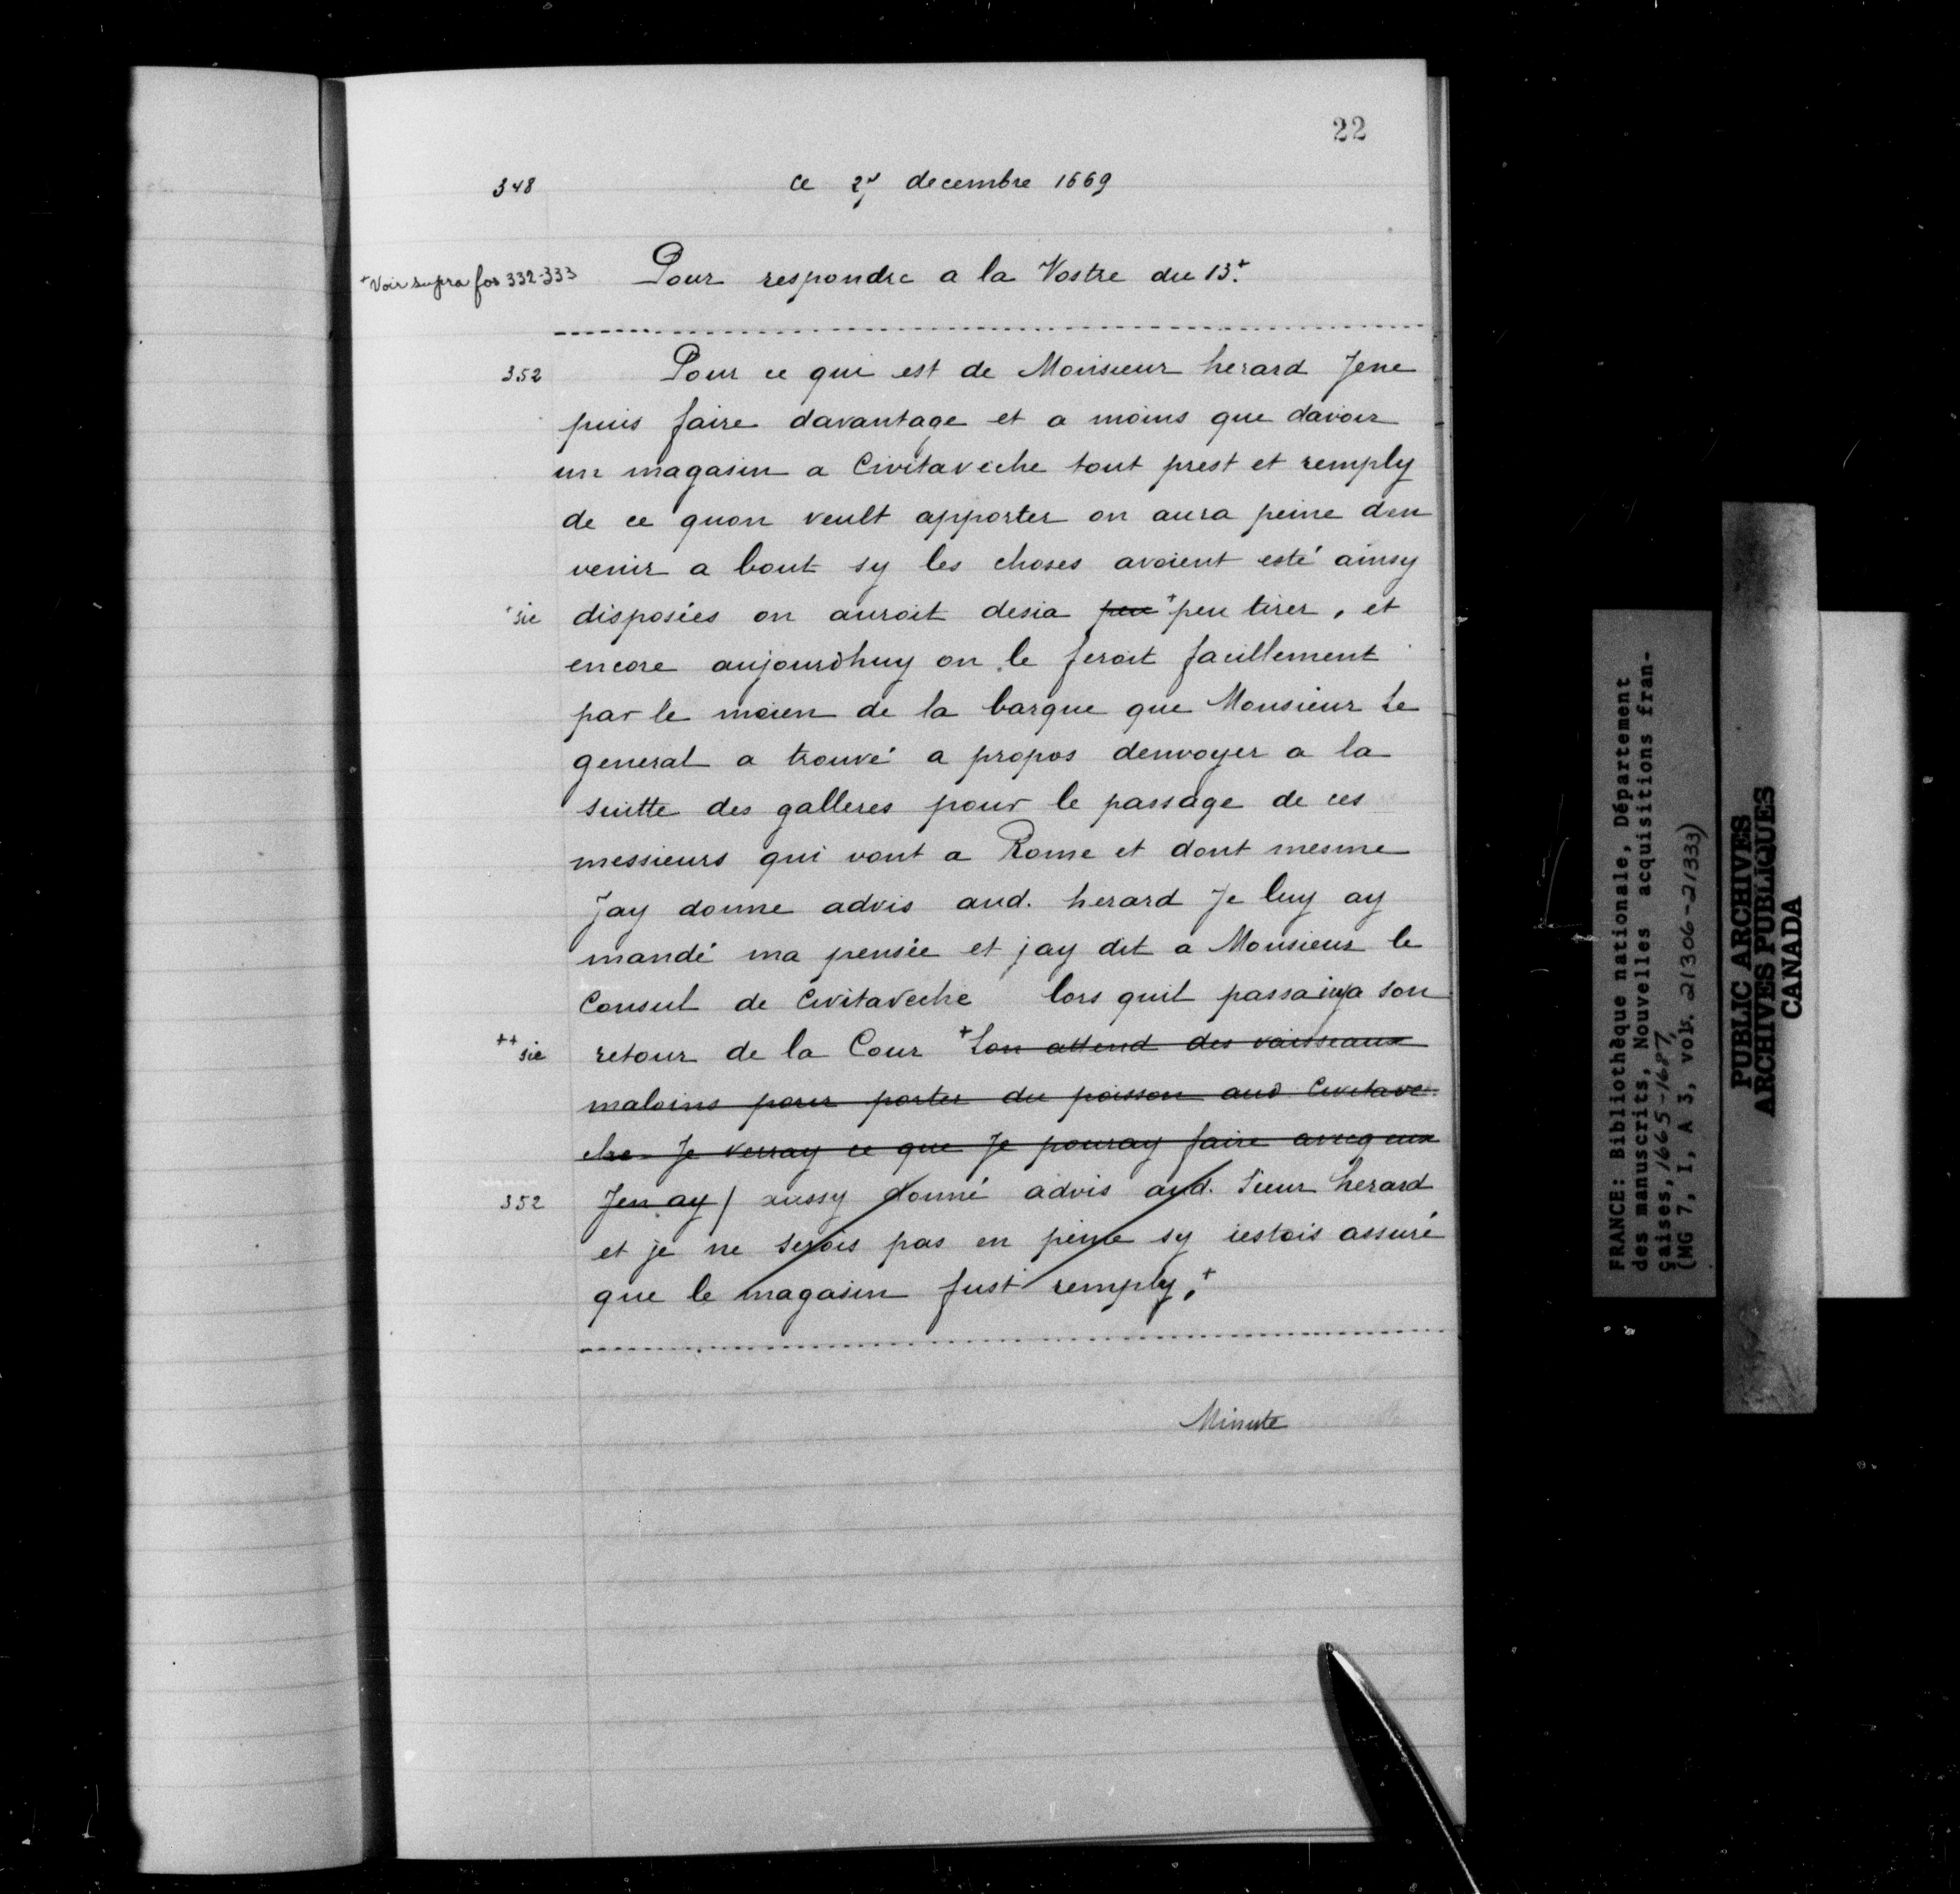 22
348 ce 27 decembre 1669
+Voir supra fos 332-333 Pour respondre a la Vostre du 13.+
352 Pour ce qui est de Monsieur herard Jene
puis faire davantage et a moins que davoir
un magasin a Civitaveche tout prest et remply
de ce quon veult apporter on aura peine den
venir a bout sy les choses avoient esté ainsy
+sic disposées on auroit desia peu +peu tirer, et
encore aujourdhuy on le feroit facillement
par le moien de la barque que Monsieur Le
general a trouvé a propos denvoyer a la
suitte des galleres pour le passage de ces
messieurs qui vont a Rome et dont mesme
Jay donne advis aud. herard Je luy ay
mandé ma pensée et jay dit a Monsieur le
Consul de Civitaveche lors quil passa icy a son
++ sic retour de la Cour +Lon attend des vaisseaux
maloins pour porter du poisson aud Civitave-
che Je verray ce que Je pouray faire avecq eux
352 Jen ay / aussy donné advis aud. Sieur herard
et je ne serois pas en peine sy iestois assuré
que le magasin fust remply.+
Minute
FRANCE: Bibliothèque nationale, Département
des manuscrits, Nouvelles acquisitions fran-
çaises, 1665-1687,
(MG 7, I, A 3, vol. 21306-21333)
PUBLIC ARCHIVES
ARCHIVES PUBLIQUES
CANADA